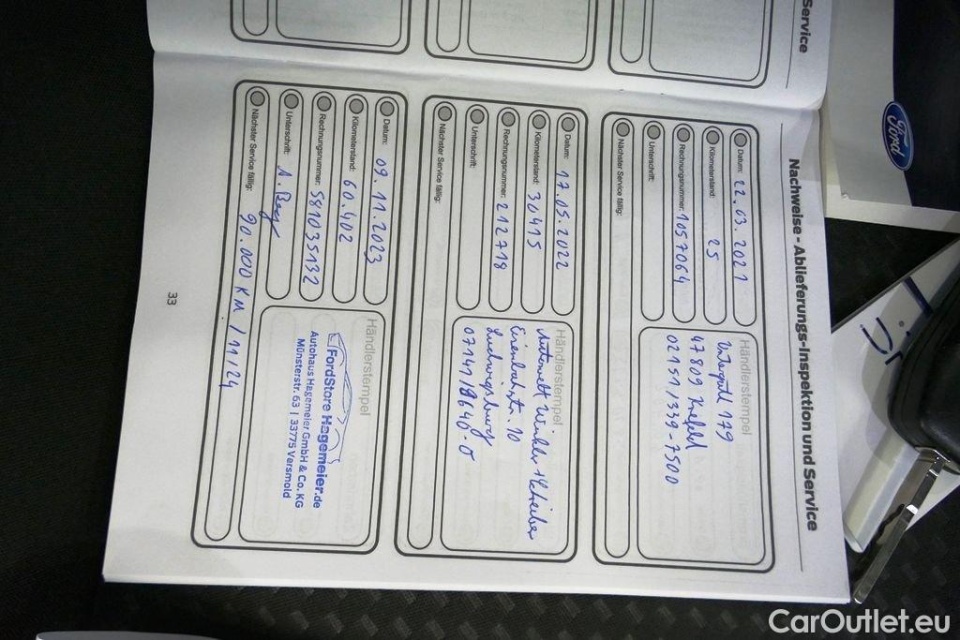 Service
Nachweise - Ablieferungs-Inspektion und Service
Datum: 22.03.2021
Kilometerstand: 25
Rechnungsnummer: 1057064
Unterschrift:
Nächster Service fällig:
Händlerstempel
Untergath 179
47809 Krefeld
02151/339-7500
Datum: 17.05.2022
Kilometerstand: 30415
Rechnungsnummer: 2112718
Unterschrift:
Nächster Service fällig:
Händlerstempel
Autowelt Winkler + Schreiber
Eisenbahnstr. 10
Ludwigsburg
07141/8640-0
Datum: 09.11.2023
Kilometerstand: 60.402
Rechnungsnummer: 581035132
Unterschrift:
Nächster Service fällig: 90.000 KM / 11/24
Händlerstempel
FordStore Hagemeier.de
Autohaus Hagemeier GmbH & Co. KG
Münsterstr. 63 | 33775 Versmold
33
Ford
CarOutlet.eu